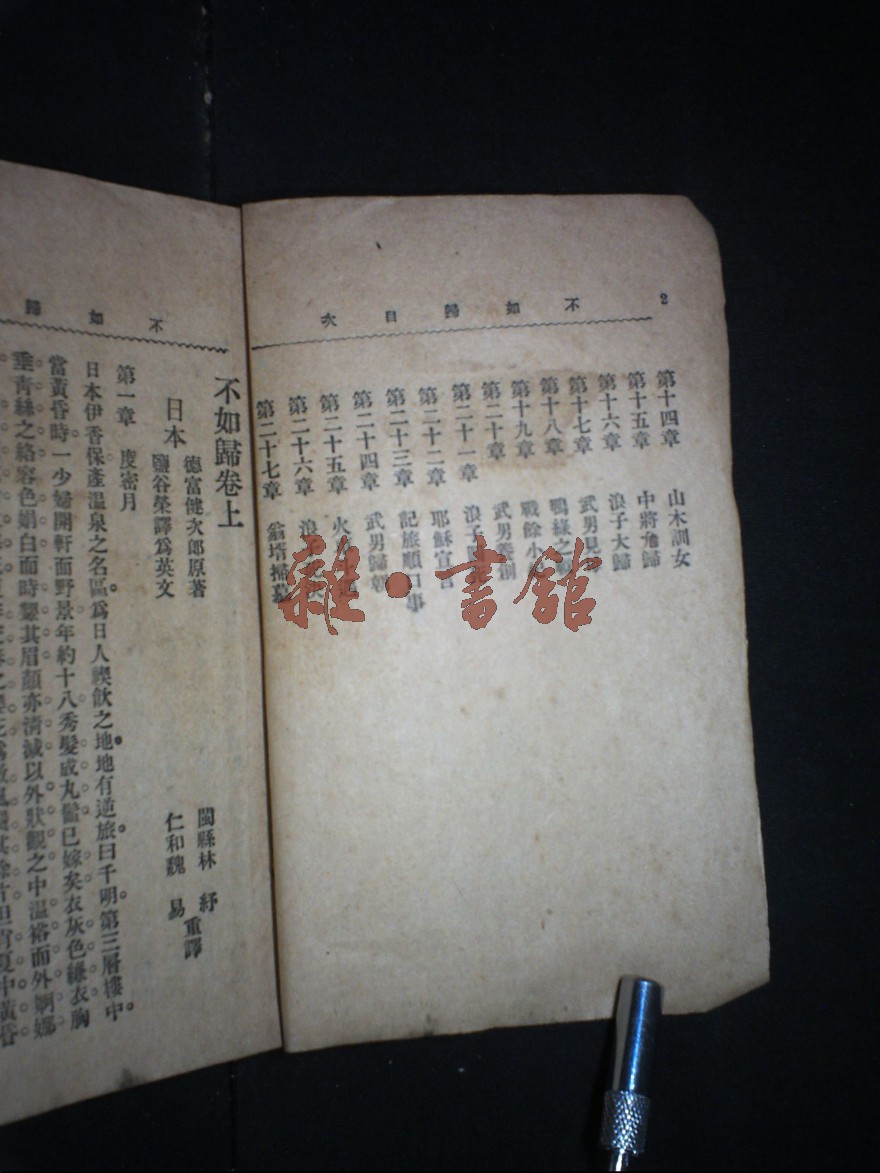 2
不如歸目次
第十四章 山木訓女
第十五章 中將歸
第十六章 浪子大歸
第十七章 武男見
第十八章 鴨綠之
第十九章 戰餘小
第二十章 武男
第二十一章 浪子
第二十二章 耶穌宣言
第二十三章 記旅順口事
第二十四章 武男歸朝
第二十五章 火
第二十六章 浪子
第二十七章 翁塔掃墓
雜·書館
不如歸
不如歸卷上
日本 德富健次郎原著
鹽谷榮譯爲英文
閩縣林紓
仁和魏易
重譯
第一章 度密月
日本伊香保產溫泉之名區爲日人禊飮之地地有逆旅曰千明第三層樓中
當黃昏時一少婦開軒面野景年約十八秀髮成丸髻已嫁矣衣灰色綠衣胸
垂靑絲之絡容色娟白面時顰其眉顏亦淸減以外狀觀之中溫裕而外婀娜